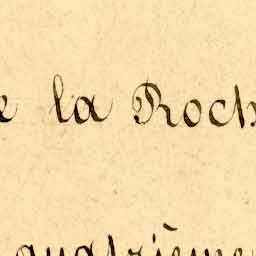 la Roch
quatrième